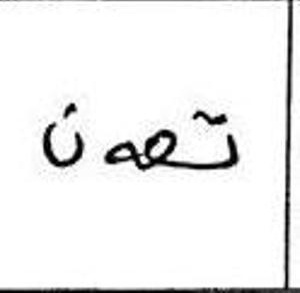 تهون